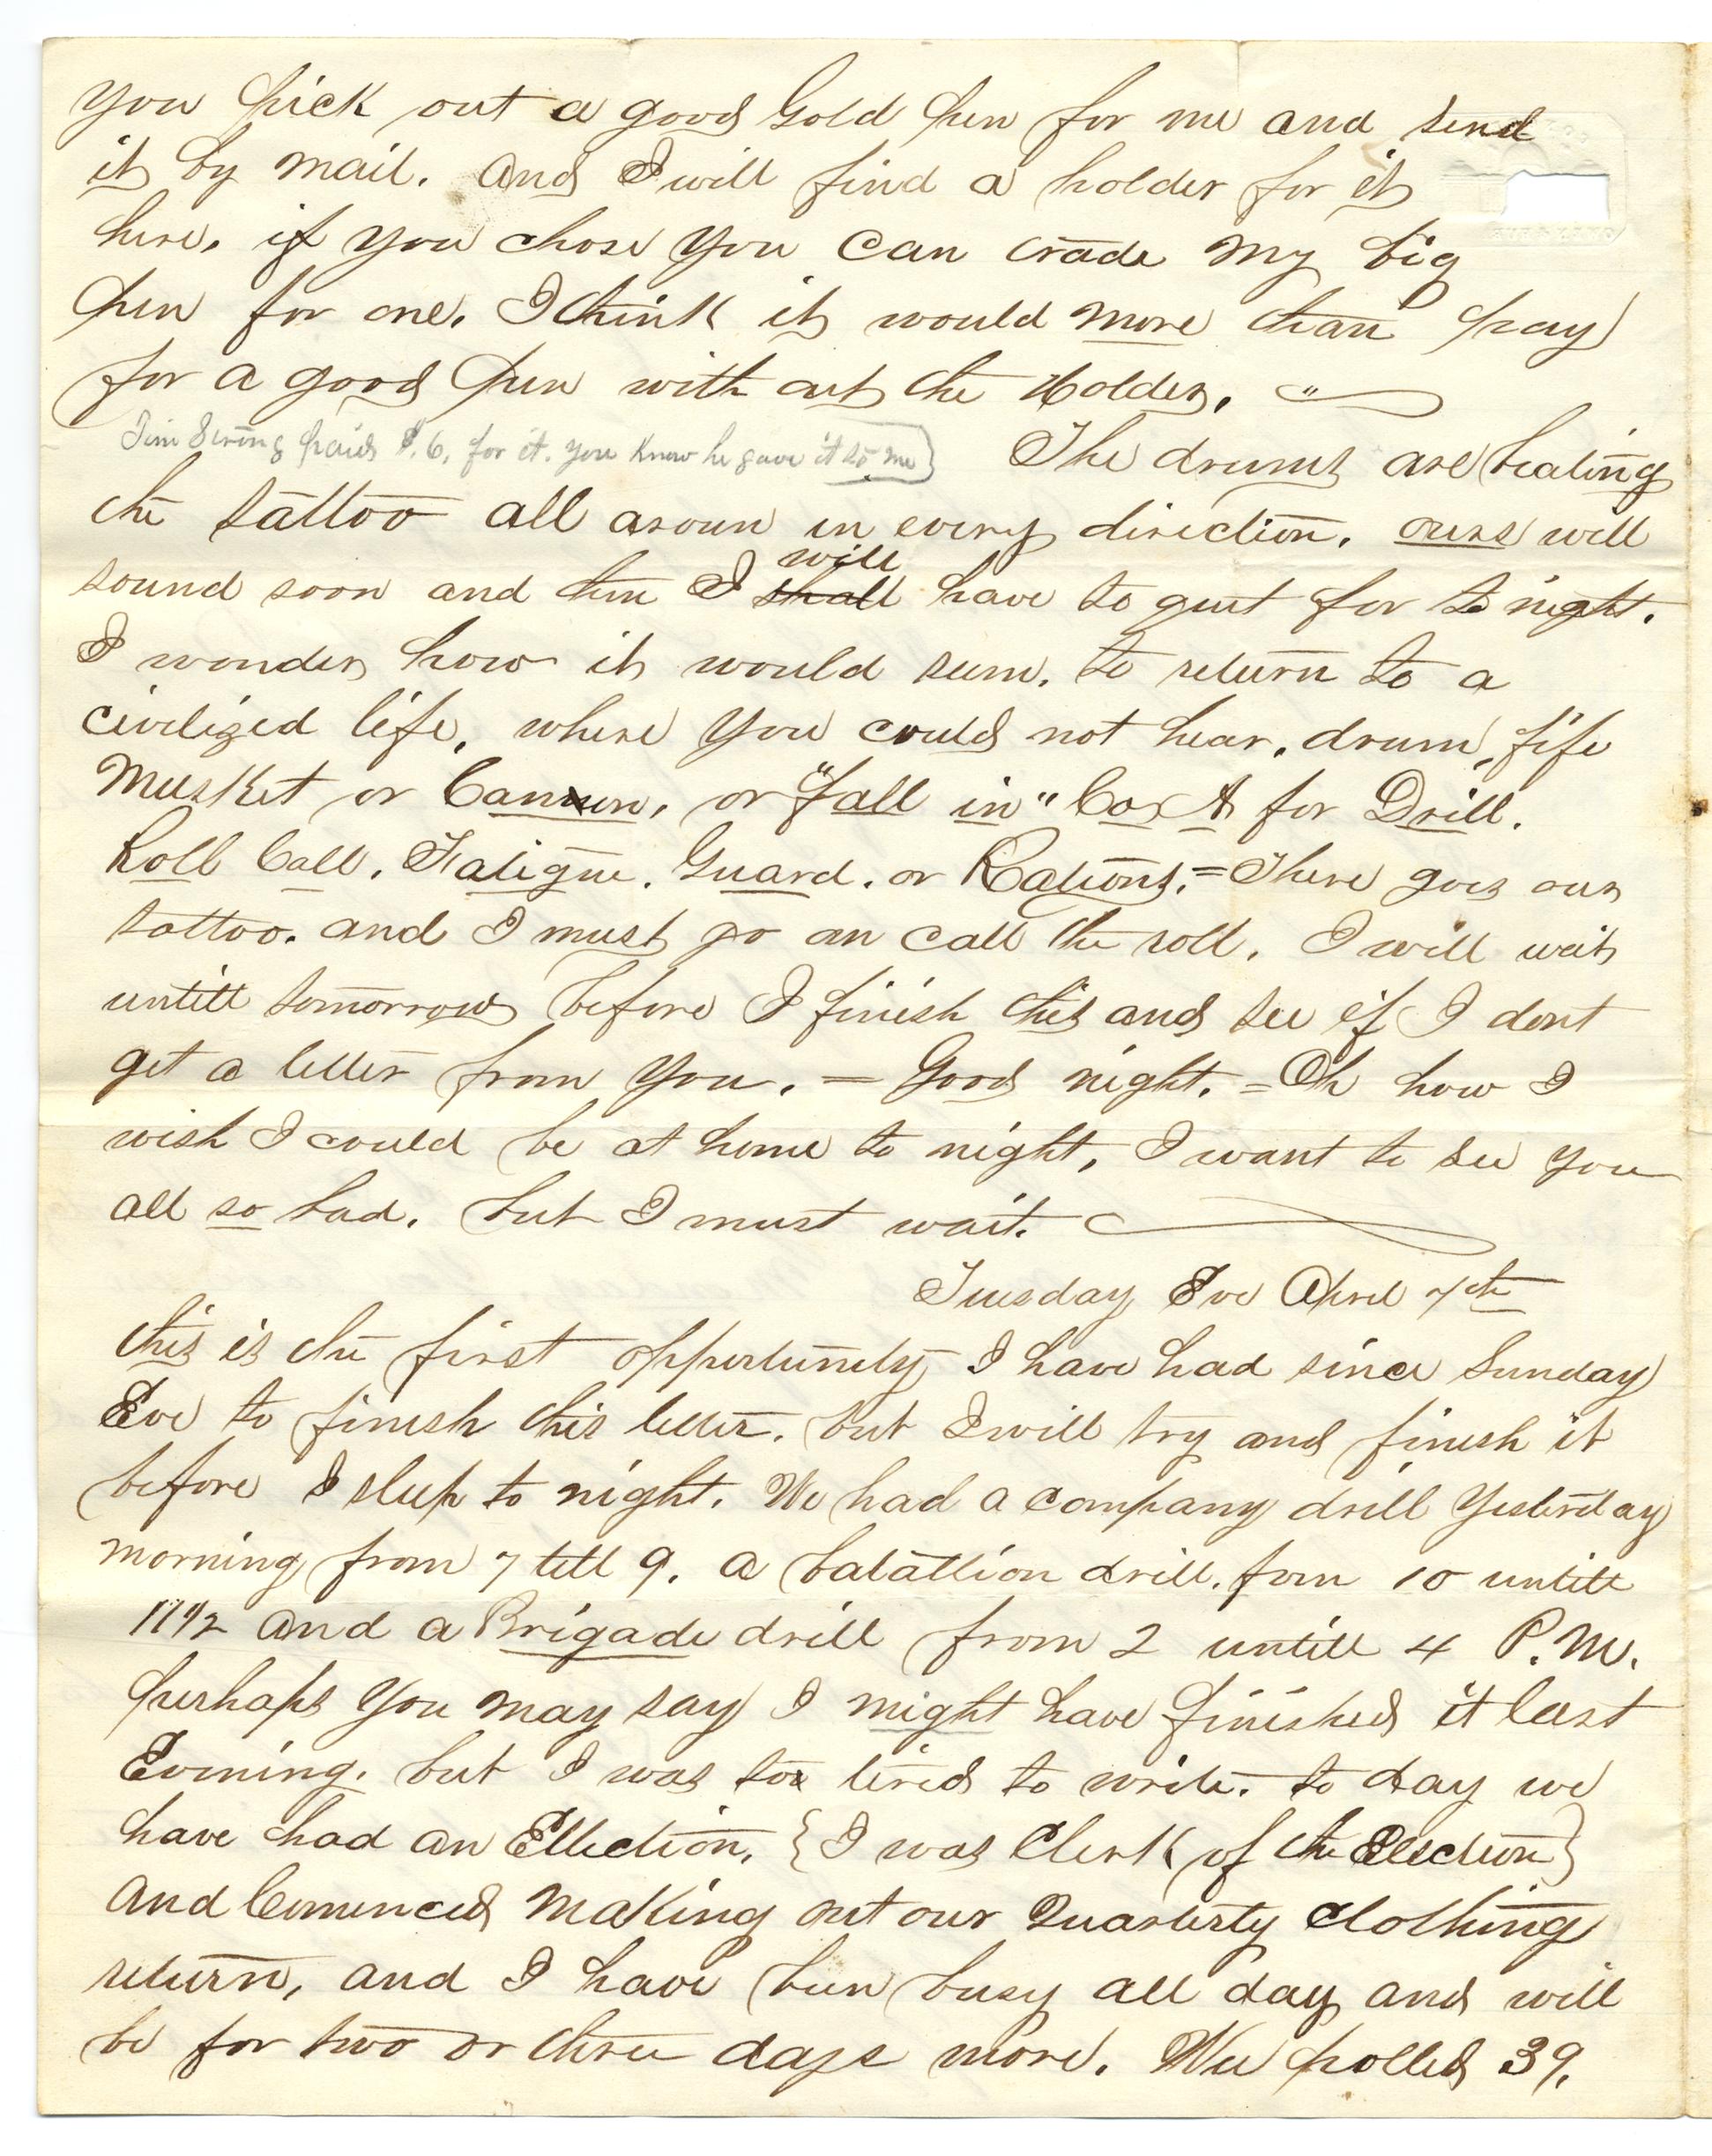 you pick out a good Gold pen for me and send
it by mail. and I will find a holder for it
here. if you chose you can trade my big
pen for one. I think it would more than pay
for a good pen with out the Holder.
Tim Strong paid $.6. for it. you know he gave it to me
The drums are beating
the tattoo all aroun in every direction. ours will
sound soon and then I shall will have to quit for to night.
I wonder how it would seem. to return to a
civilized life, where you could not hear. drum, fife
Musket or Cannon, or "fall in" Co A for Drill.
Roll Call. Fatigue. Guard. or Rations. = There goes our
tattoo. and I must go an call the roll. I will wait
untill tomorrow before I finish this and see if I dont
get a letter from you. = Good night. = Oh how I
wish I could be at home to night, I want to see you
all so bad. but I must wait.
Tuesday Eve April 7th
this is the first oppertunity I have had since Sunday
Eve to finish this letter. but I will try and finish it
before I sleep to night. We had a company drill yesterday
morning from 7 till 9. a batallion drill. fom 10 untill
11 1/2 and a Brigade drill from 2 untill 4 P.M.
perhaps you may say I might have finished it last
Evening. but I was too tired to write. to day we
have had an Ellection, {I was Clerk of the Ellection}
and Comenced making out our Quarterty clothing
return, and I have been busy all day and will
be for two or three days more. Wee polled 39.